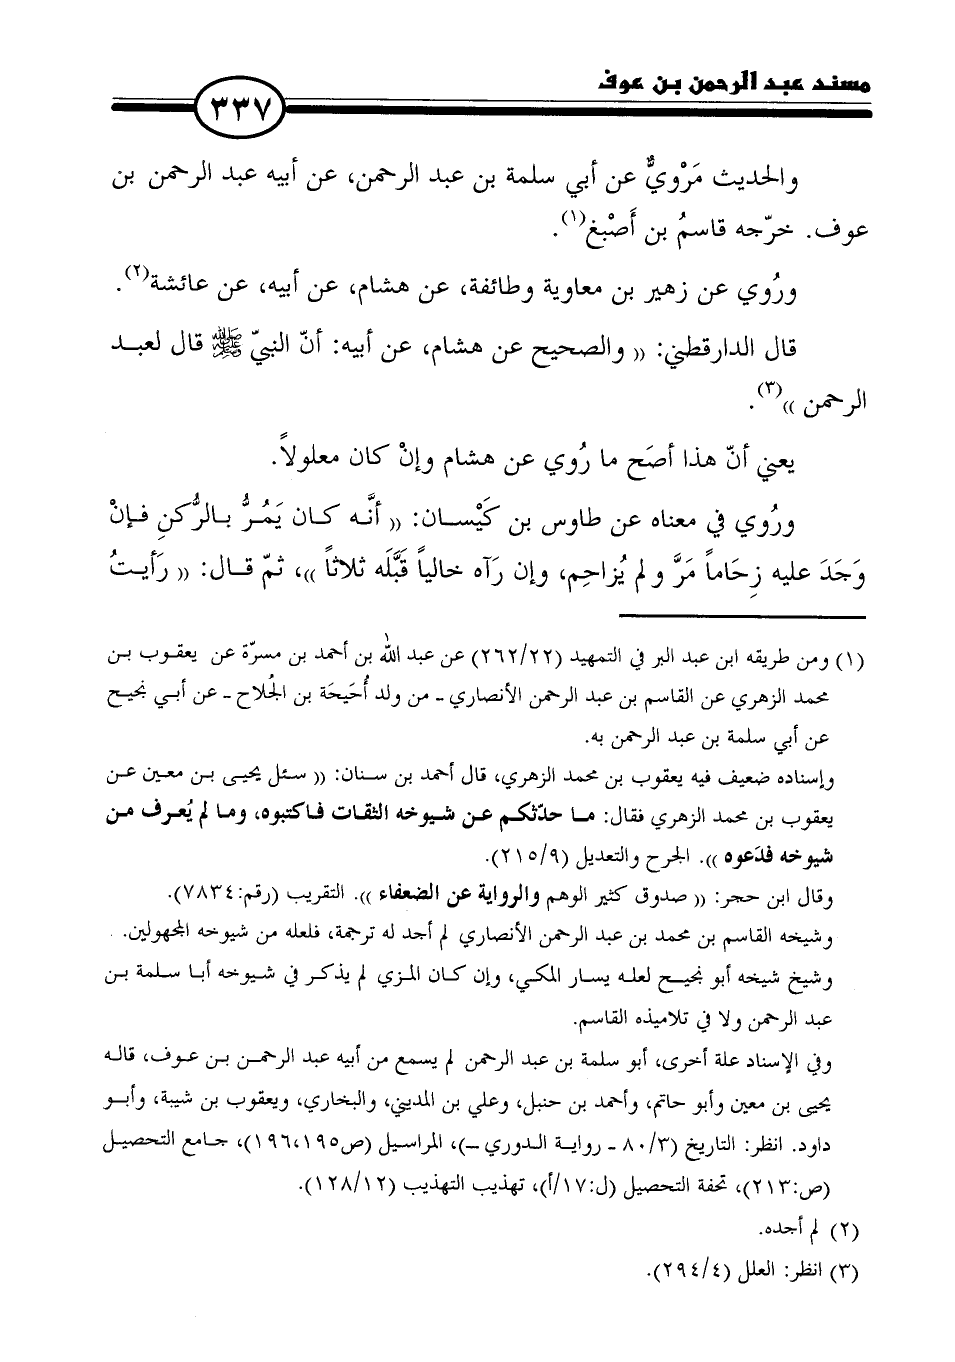 مسند عبد الرحمن بن عوف
٣٣٧
والحديث مَرْويٌّ عن أبي سلمة بن عبد الرحمن، عن أبيه عبد الرحمن بن
عوف. خرّجه قاسمُ بن أَصْبغ(١).
ورُوي عن زهير بن معاوية وطائفة، عن هشام، عن أبيه، عن عائشة(٢).
قال الدارقطني: (( والصحيح عن هشام، عن أبيه: أنّ النبيّ ﷺ قال لعبد
الرحمن ))(٣).
يعني أنّ هذا أصَح ما رُوي عن هشام وإنْ كان معلولاً.
ورُوي في معناه عن طاوس بن كَيْسان: (( أنَّه كان يَمُرُّ بالرُّكنِ فإنْ
وَجَدَ عليه زِحَاماً مَرَّ و لم يُزاحِم، وإن رَآه خالياً قَبَّلَه ثلاثاً ))، ثمّ قال: (( رَأيتُ
(١) ومن طريقه ابن عبد البر في التمهيد (٢٦٢/٢٢) عن عبد الله بن أحمد بن مسرّة عن يعقوب بن
محمد الزهري عن القاسم بن عبد الرحمن الأنصاري - من ولد أُحَيحَة بن الجُلاح - عن أبي نجيح
عن أبي سلمة بن عبد الرحمن به.
وإسناده ضعيف فيه يعقوب بن محمد الزهري، قال أحمد بن سنان: (( سئل يحيى بن معين عن
يعقوب بن محمد الزهري فقال: ما حدّثكم عن شيوخه الثقات فاكتبوه، وما لم يُعرف من
شيوخه فدَعوه )). الجرح والتعديل (٢١٥/٩).
وقال ابن حجر: (( صدوق كثير الوهم والرواية عن الضعفاء )). التقريب (رقم:٧٨٣٤).
وشيخه القاسم بن محمد بن عبد الرحمن الأنصاري لم أجد له ترجمة، فلعله من شيوخه المجهولين.
وشيخ شيخه أبو نجيح لعله يسار المكي، وإن كان المزي لم يذكر في شيوخه أبا سلمة بن
عبد الرحمن ولا في تلاميذه القاسم.
وفي الإسناد علة أخرى، أبو سلمة بن عبد الرحمن لم يسمع من أبيه عبد الرحمن بن عوف، قاله
يحيى بن معين وأبو حاتم، وأحمد بن حنبل، وعلي بن المديني، والبخاري، ويعقوب بن شيبة، وأبو
داود. انظر: التاريخ (٨٠/٣ - رواية الدوري -)، المراسيل (ص١٩٥،١٩٦)، جامع التحصيل
(ص:٢١٣)، تحفة التحصيل (ل:١٧/أ)، تهذيب التهذيب (١٢٨/١٢).
(٢) لم أجده.
(٣) انظر: العلل (٢٩٤/٤).